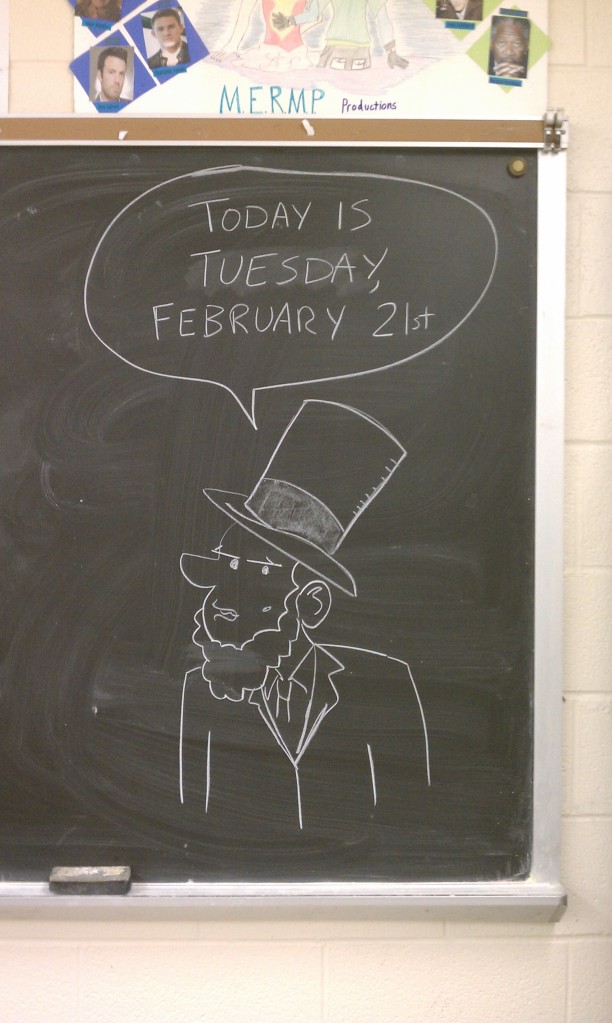 M.E.R.M.P. Productions
TODAY IS
TUESDAY,
FEBRUARY 21st